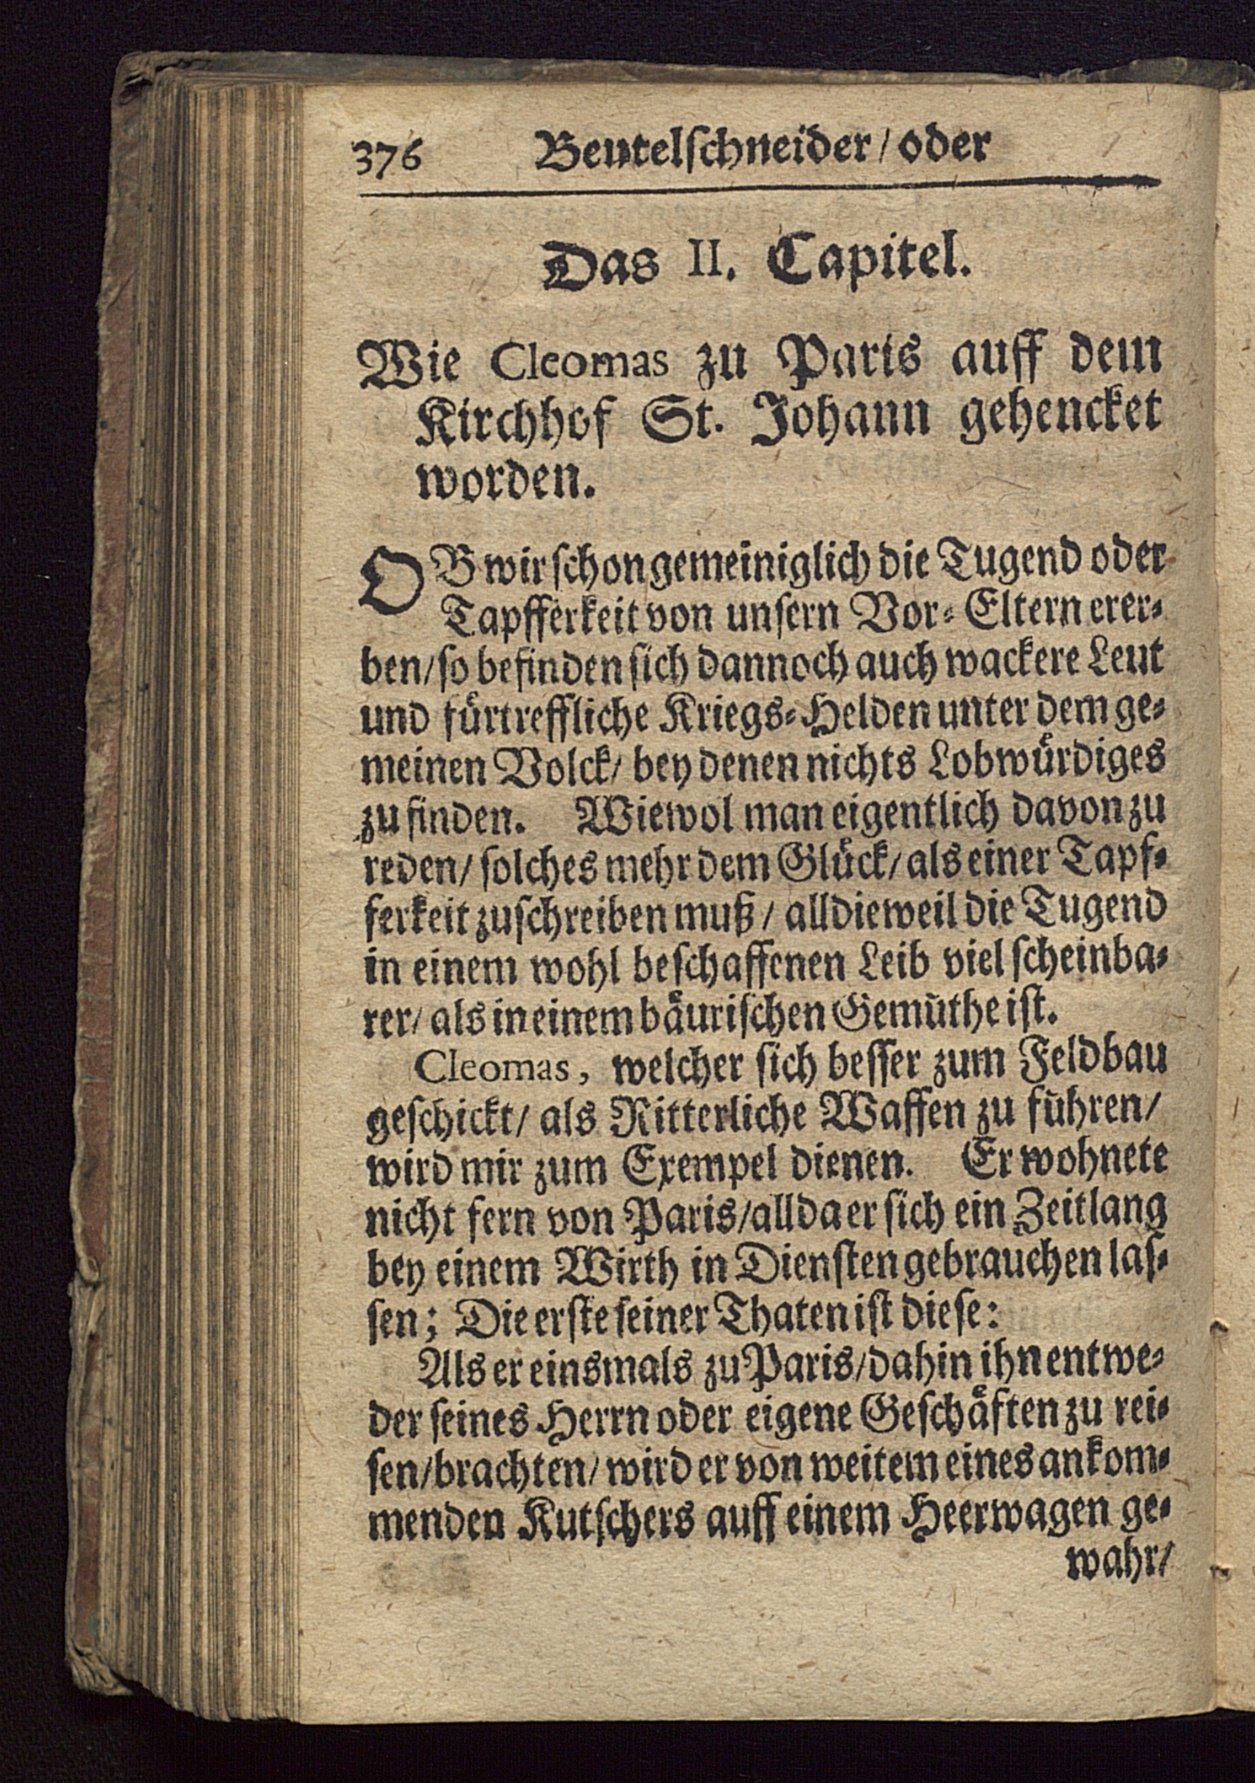 376 Beutelschneider/ oder
Das II. Capitel.
Wie Cleomas zu Paris auff dem
Kirchhof St. Johann gehencket
worden.
OB wir schon gemeiniglich die Tugend oder
Tapfferkeit von unsern Vor-Eltern erer-
ben/ so befinden sich dannoch auch wackere Leut
und fürtreffliche Kriegs-Helden unter dem ge-
meinen Volck/ bey denen nichts Lobwürdiges
zu finden. Wiewol man eigentlich davon zu
reden/ solches mehr dem Glück/ als einer Tapf-
ferkeit zuschreiben muß/ alldieweil die Tugend
in einem wohl beschaffenen Leib viel scheinba-
rer/ als in einem bäurischen Gemüthe ist.
Cleomas, welcher sich besser zum Feldbau
geschickt/ als Ritterliche Waffen zu führen/
wird mir zum Exempel dienen. Er wohnete
nicht fern von Paris/ allda er sich ein Zeitlang
bey einem Wirth in Diensten gebrauchen las-
sen; Die erste seiner Thaten ist diese:
Als er einsmals zu Paris/ dahin ihn entwe-
der seines Herrn oder eigene Geschäften zu rei-
sen/ brachten/ wird er von weitem eines ankom-
menden Kutschers auff einem Heerwagen ge-
wahr/